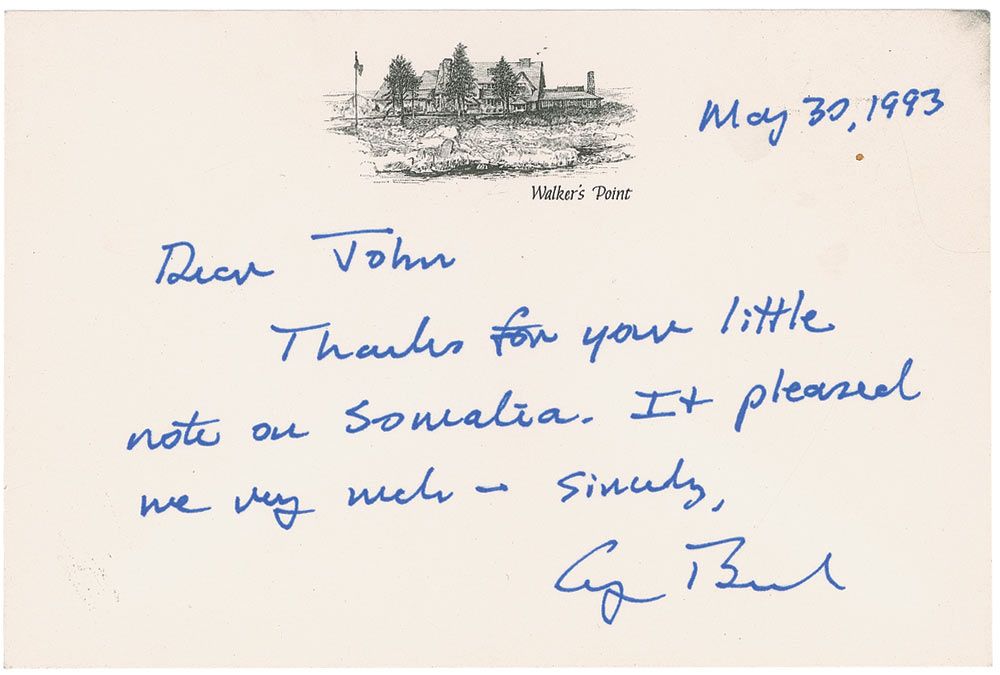 May 30, 1993
Walker's Point
Dear John
Thanks for your little
note on Somalia. It pleased
me very much — Sincerely,
George Bush